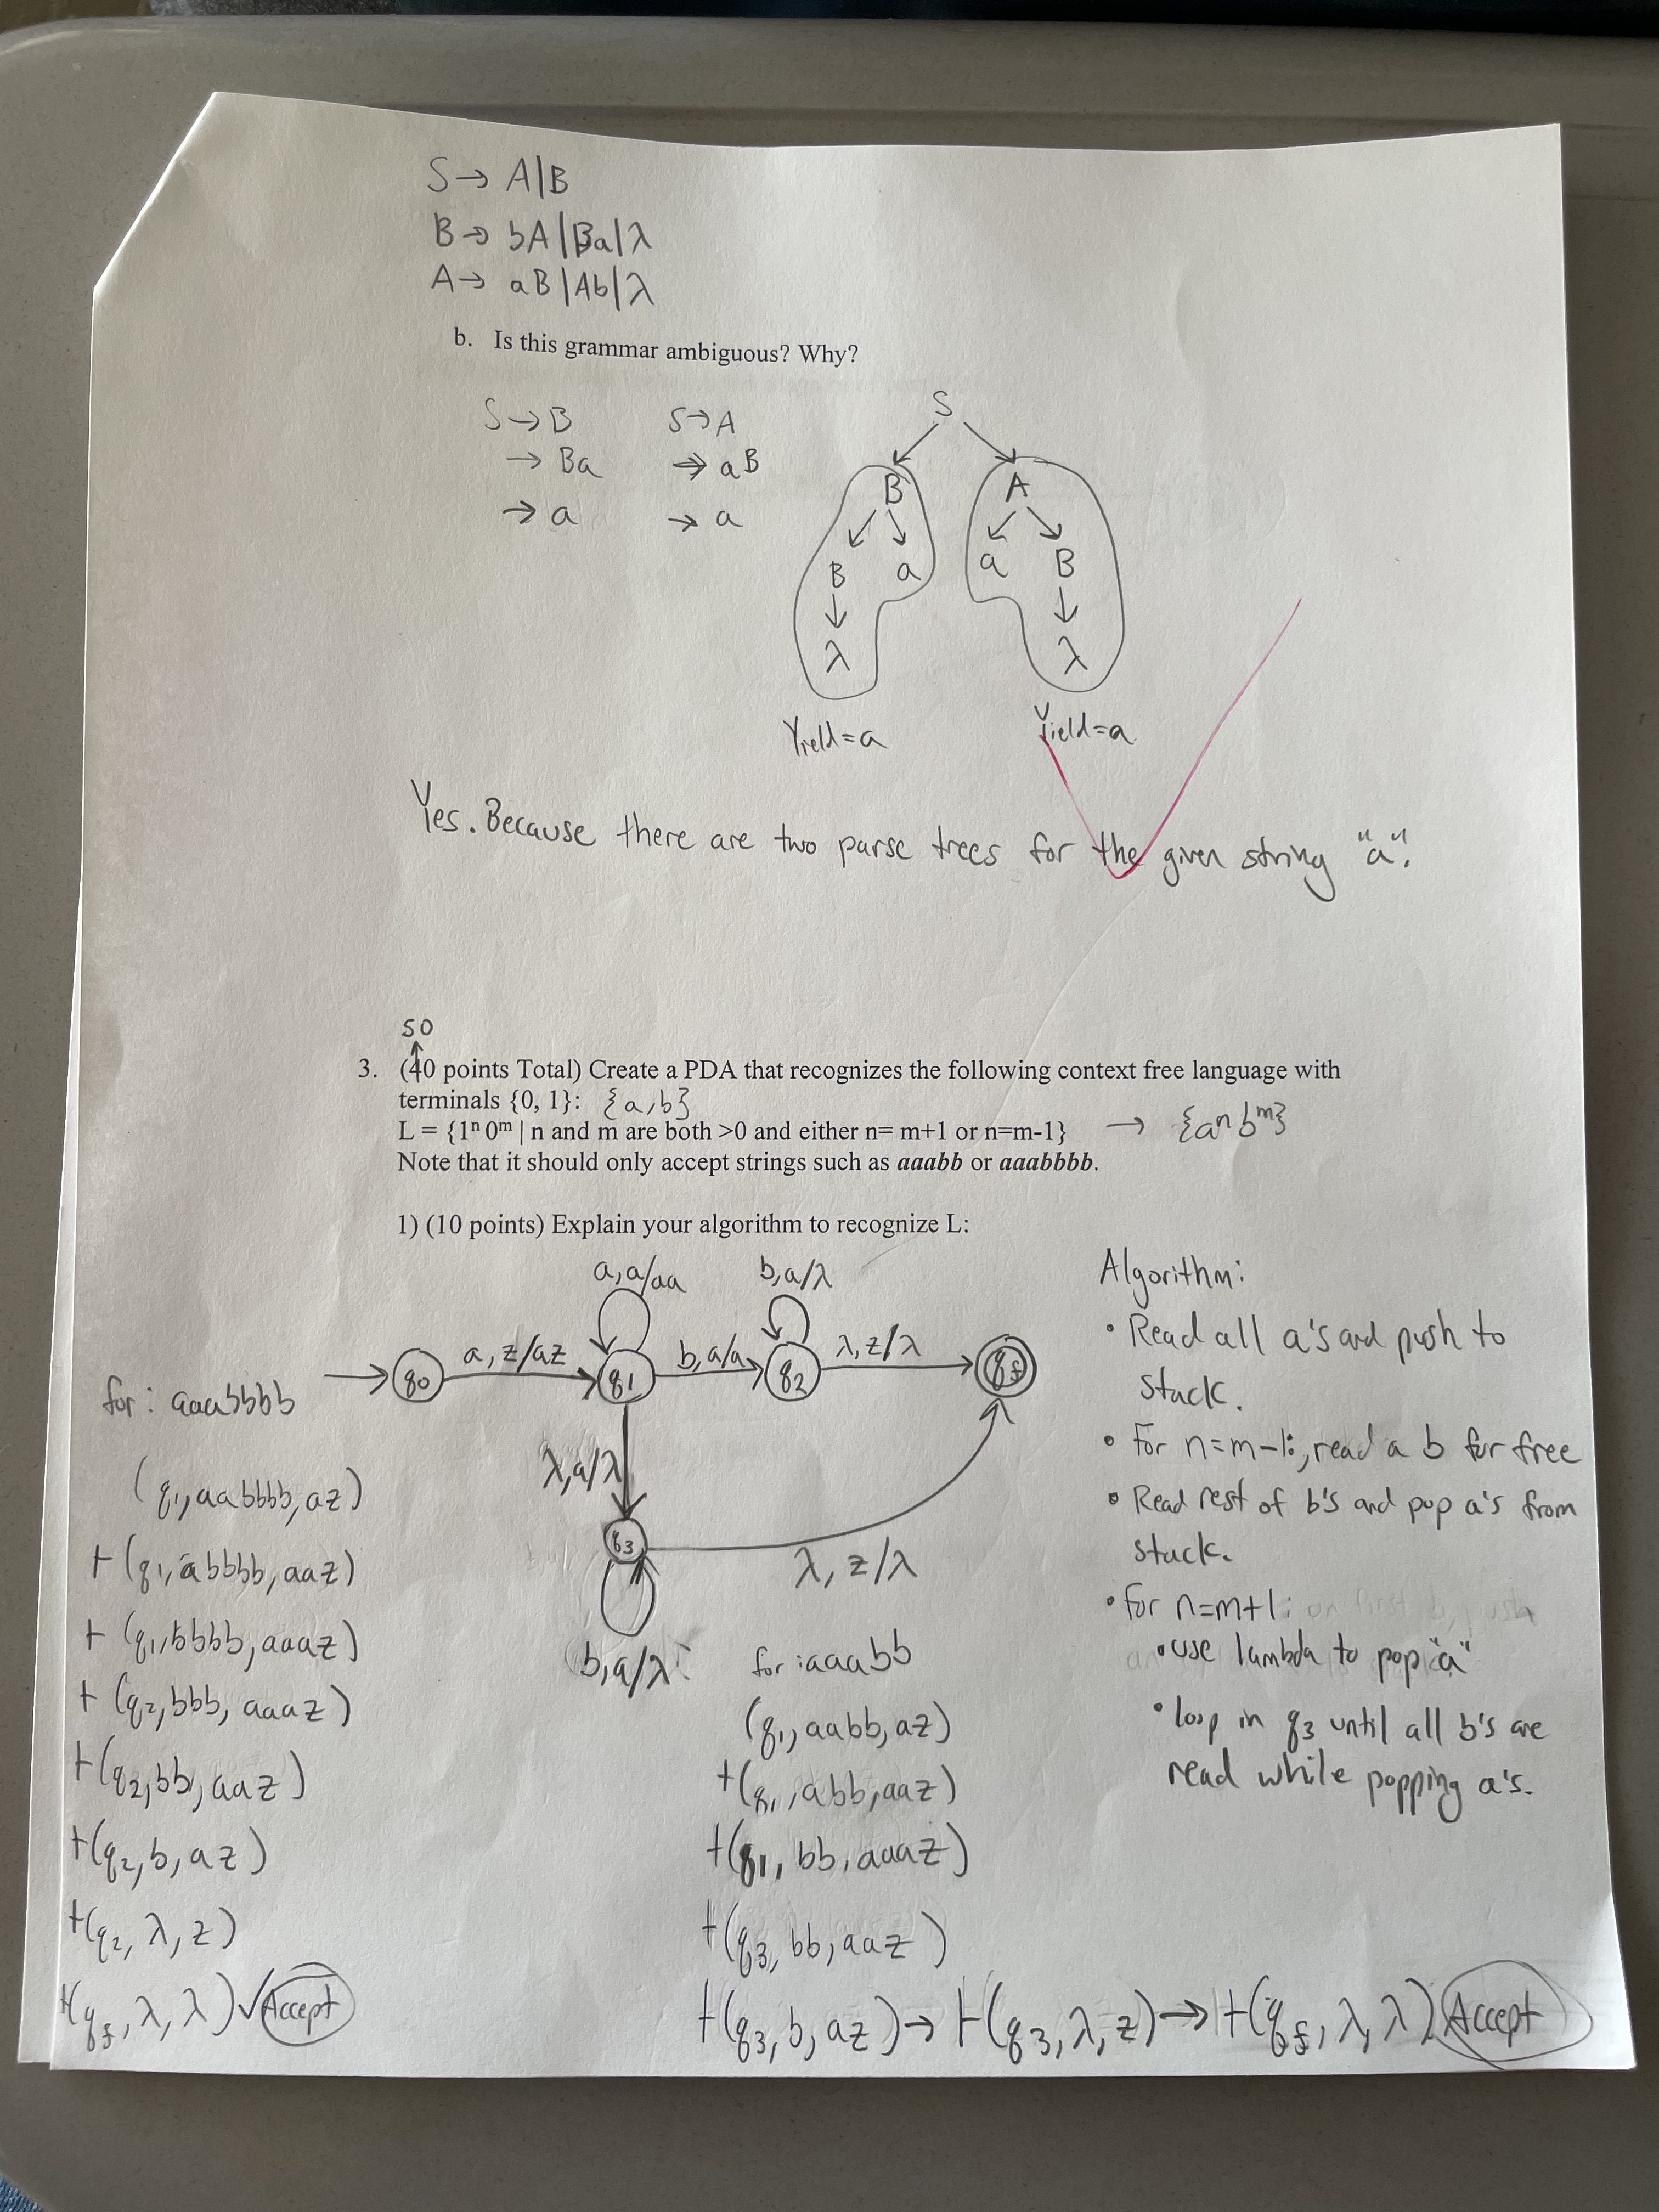 S → A|B
B → bA|Ba|λ
A → aB|Ab|λ
b. Is this grammar ambiguous? Why?
S → B
→ Ba
→ a
S → A
→ aB
→ a
S
B A
B a a B
λ λ
Yield = a Yield = a
Yes. Because there are two parse trees for the given string "a".
50
3. (40 points Total) Create a PDA that recognizes the following context free language with
terminals {0, 1}: {a,b}
L = {1ⁿ 0ᵐ | n and m are both >0 and either n= m+1 or n=m-1} → {aⁿbᵐ}
Note that it should only accept strings such as aaabb or aaabbbb.
1) (10 points) Explain your algorithm to recognize L:
a,a/aa b,a/λ
a, z/az b,a/a λ,z/λ
q0 q1 q2 qf
λ,a/λ
q3
λ, z/λ
b,a/λ
for: aaabbbb
(q1,aabbbb,az)
⊢(q1,abbbb,aaz)
⊢(q1,bbbb,aaaz)
⊢(q2,bbb,aaaz)
⊢(q2,bb,aaz)
⊢(q2,b,az)
⊢(q2,λ,z)
⊢(qf,λ,λ)✓ Accept
for: aaabb
(q1,aabb,az)
⊢(q1,abb,aaz)
⊢(q1,bb,aaaz)
⊢(q3,bb,aaz)
⊢(q3,b,az) → ⊢(q3,λ,z) → ⊢(qf,λ,λ) Accept
Algorithm:
• Read all a's and push to
stack.
• For n=m-1:, read a b for free
• Read rest of b's and pop a's from
stack.
• for n=m+1:
• use lambda to pop "a"
• loop in q3 until all b's are
read while popping a's.